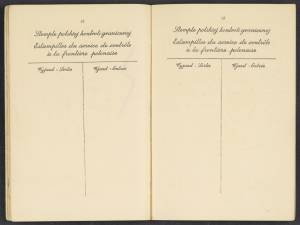 Stemple polskiej kontroli granicznej
Estampilles du service de contrôle
à la frontière polonaise
Wyjazd - Sortie Wjazd - Entrée
Stemple polskiej kontroli granicznej
Estampilles du service de contrôle
à la frontière polonaise
Wyjazd - Sortie Wjazd - Entrée